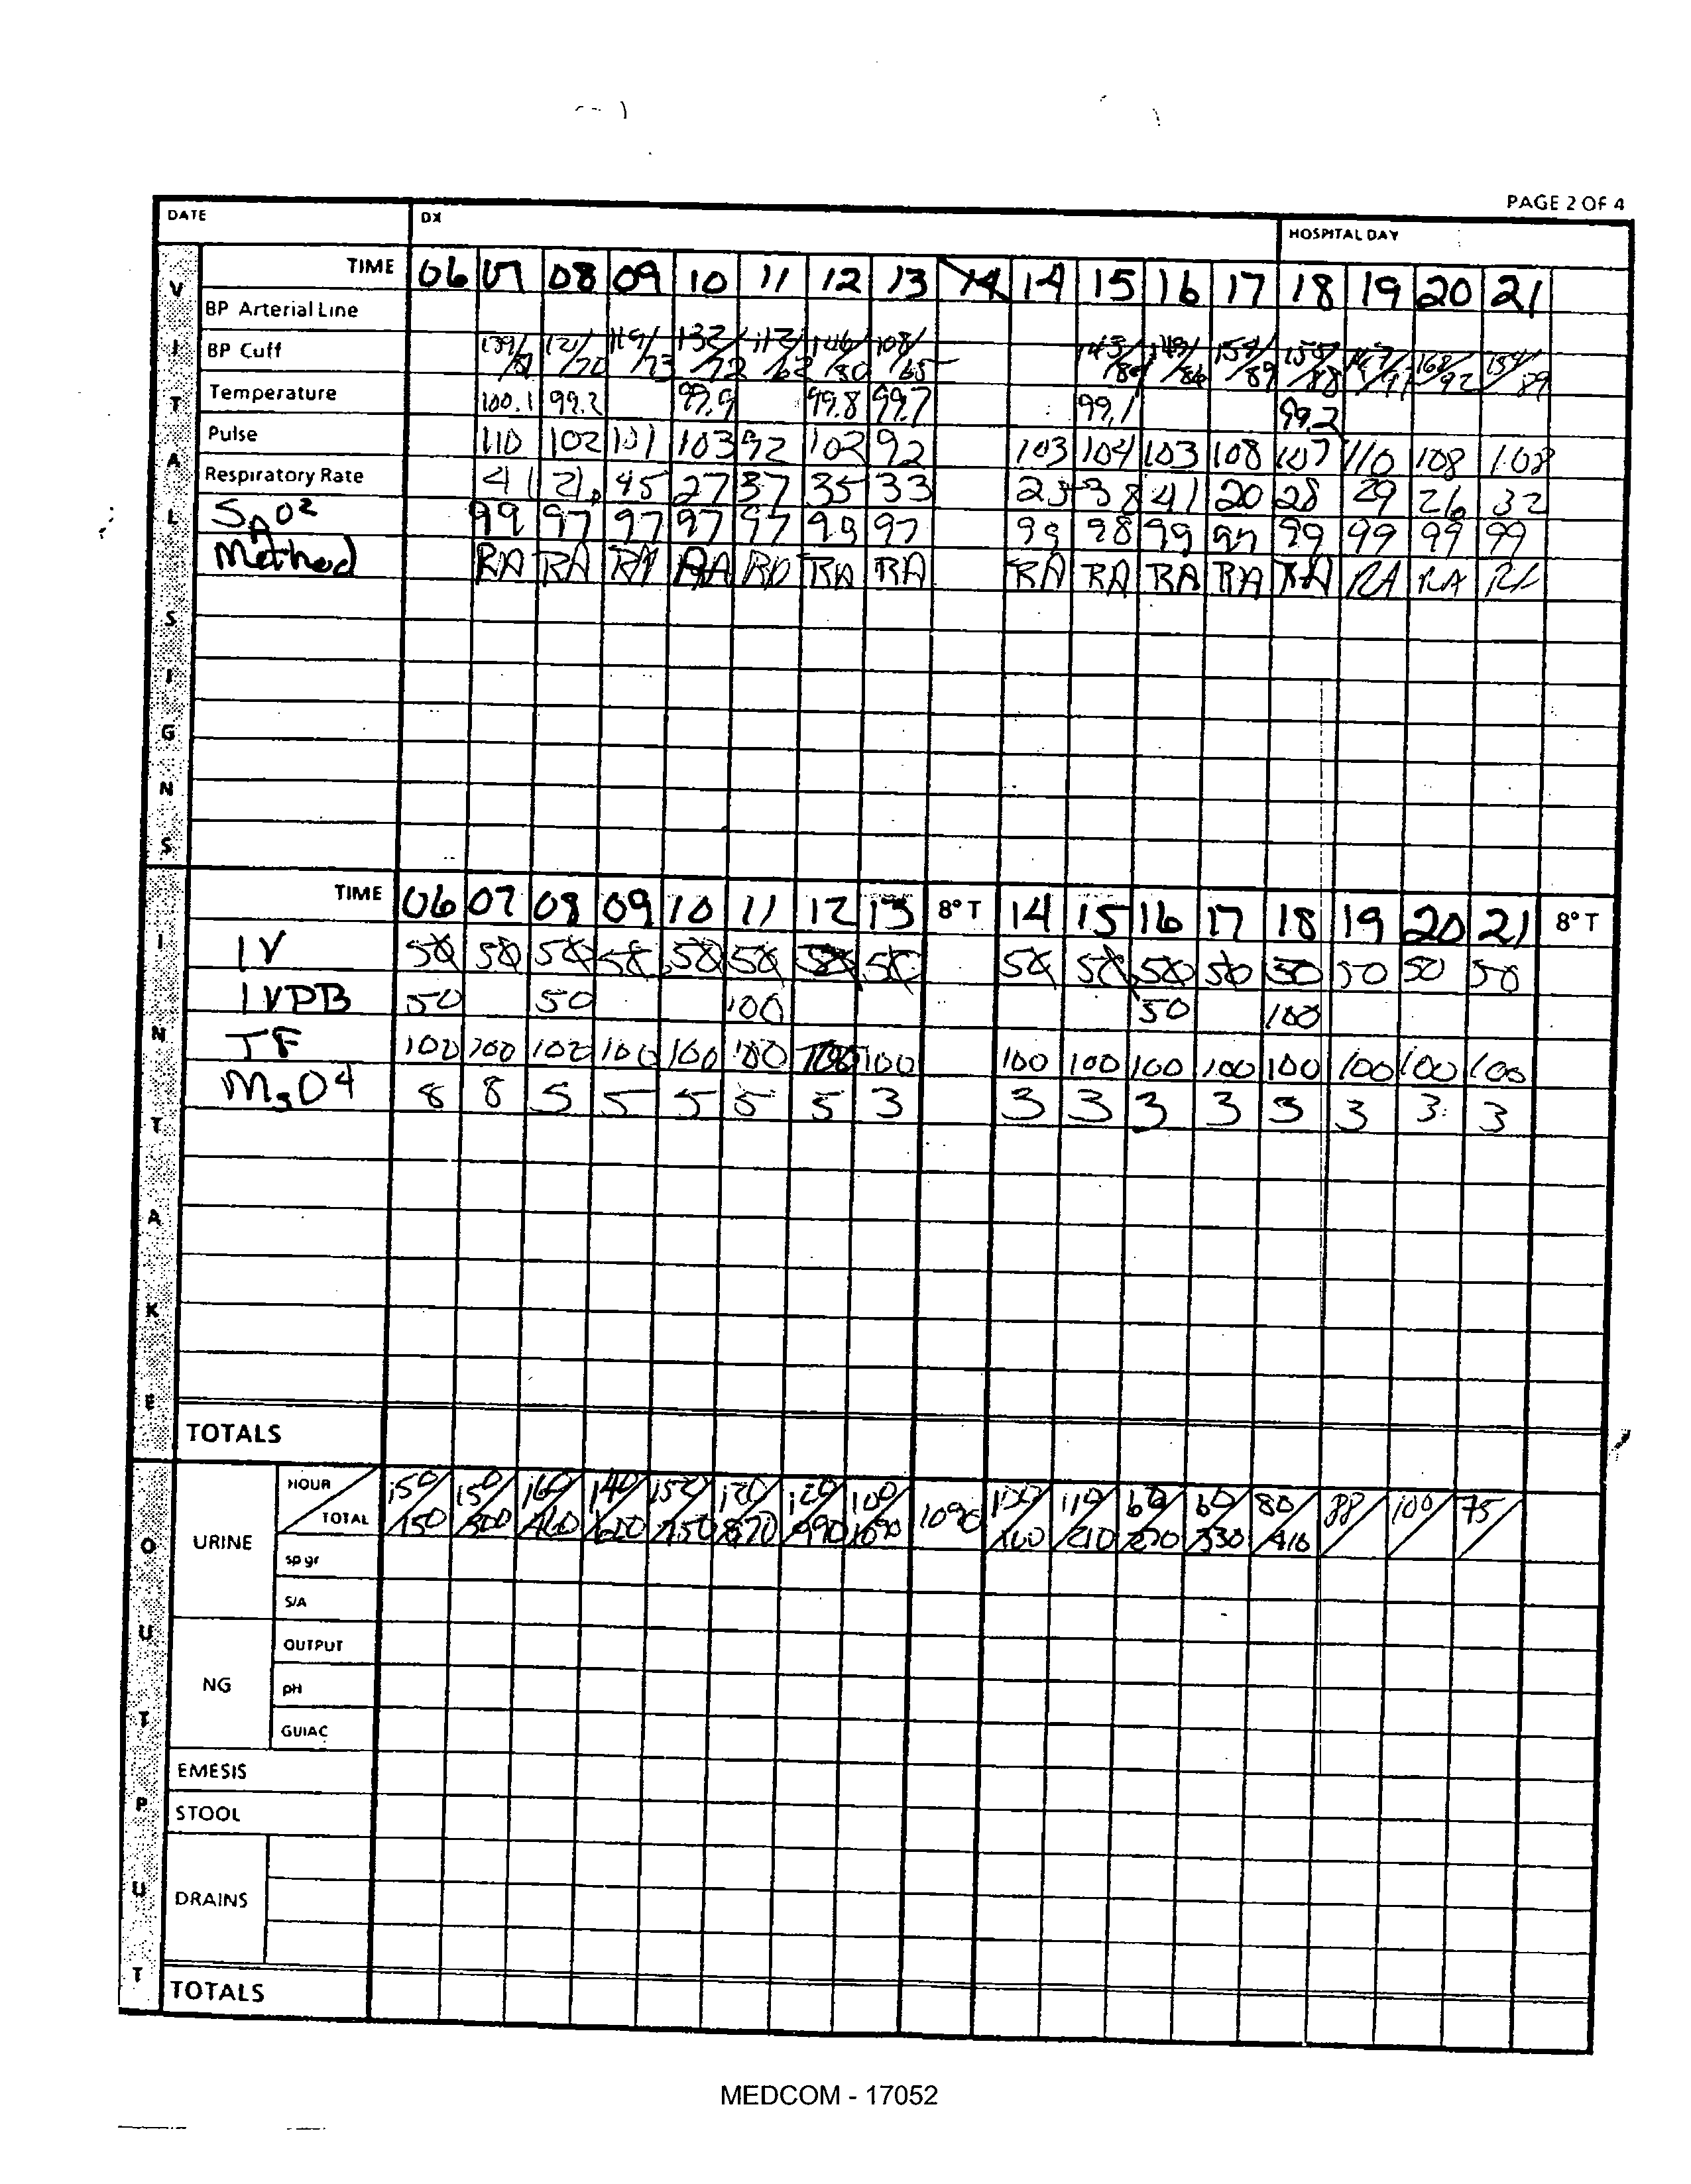 PAGE 2 OF 4
DATE DX HOSPITAL DAY
VITAL SIGNS
TIME 06 07 08 09 10 11 12 13 14 14 15 16 17 18 19 20 21
BP Arterial Line
BP Cuff 139/ 121/70 119/73 132/72 112/62 146/80 108/65 143/ 149/86 154/89 154/88 167/91 168/92 154/89
Temperature 100.1 99.2 99.9 99.8 99.7 99.1 99.2
Pulse 110 102 101 103 92 102 92 103 104 103 108 107 110 108 108
Respiratory Rate 41 21 45 27 37 35 33 23 38 41 20 28 29 26 32
SAO2 99 97 97 97 97 99 97 99 98 99 97 99 99 99 99
Method RA RA RA RA RA RA RA RA RA RA RA RA RA RA RA
INTAKE
TIME 06 07 08 09 10 11 12 13 8° T 14 15 16 17 18 19 20 21 8° T
IV 50 50 50 50 50 50 50 50 50 50 50 50 50 50 50
IVPB 50 50 100 50 100
TF 100 100 100 100 100 100 100 100 100 100 100 100 100 100 100 100
MSO4 8 8 5 5 5 5 5 3 3 3 3 3 3 3 3 3
TOTALS
OUTPUT
URINE
HOUR 150 150 160 140 150 120 120 100 1090 100 110 60 60 80 88 100 75
TOTAL 150 300 460 600 750 870 990 1090 100 210 270 330 410
sp gr
S/A
NG
OUTPUT
pH
GUIAC
EMESIS
STOOL
DRAINS
TOTALS
MEDCOM - 17052